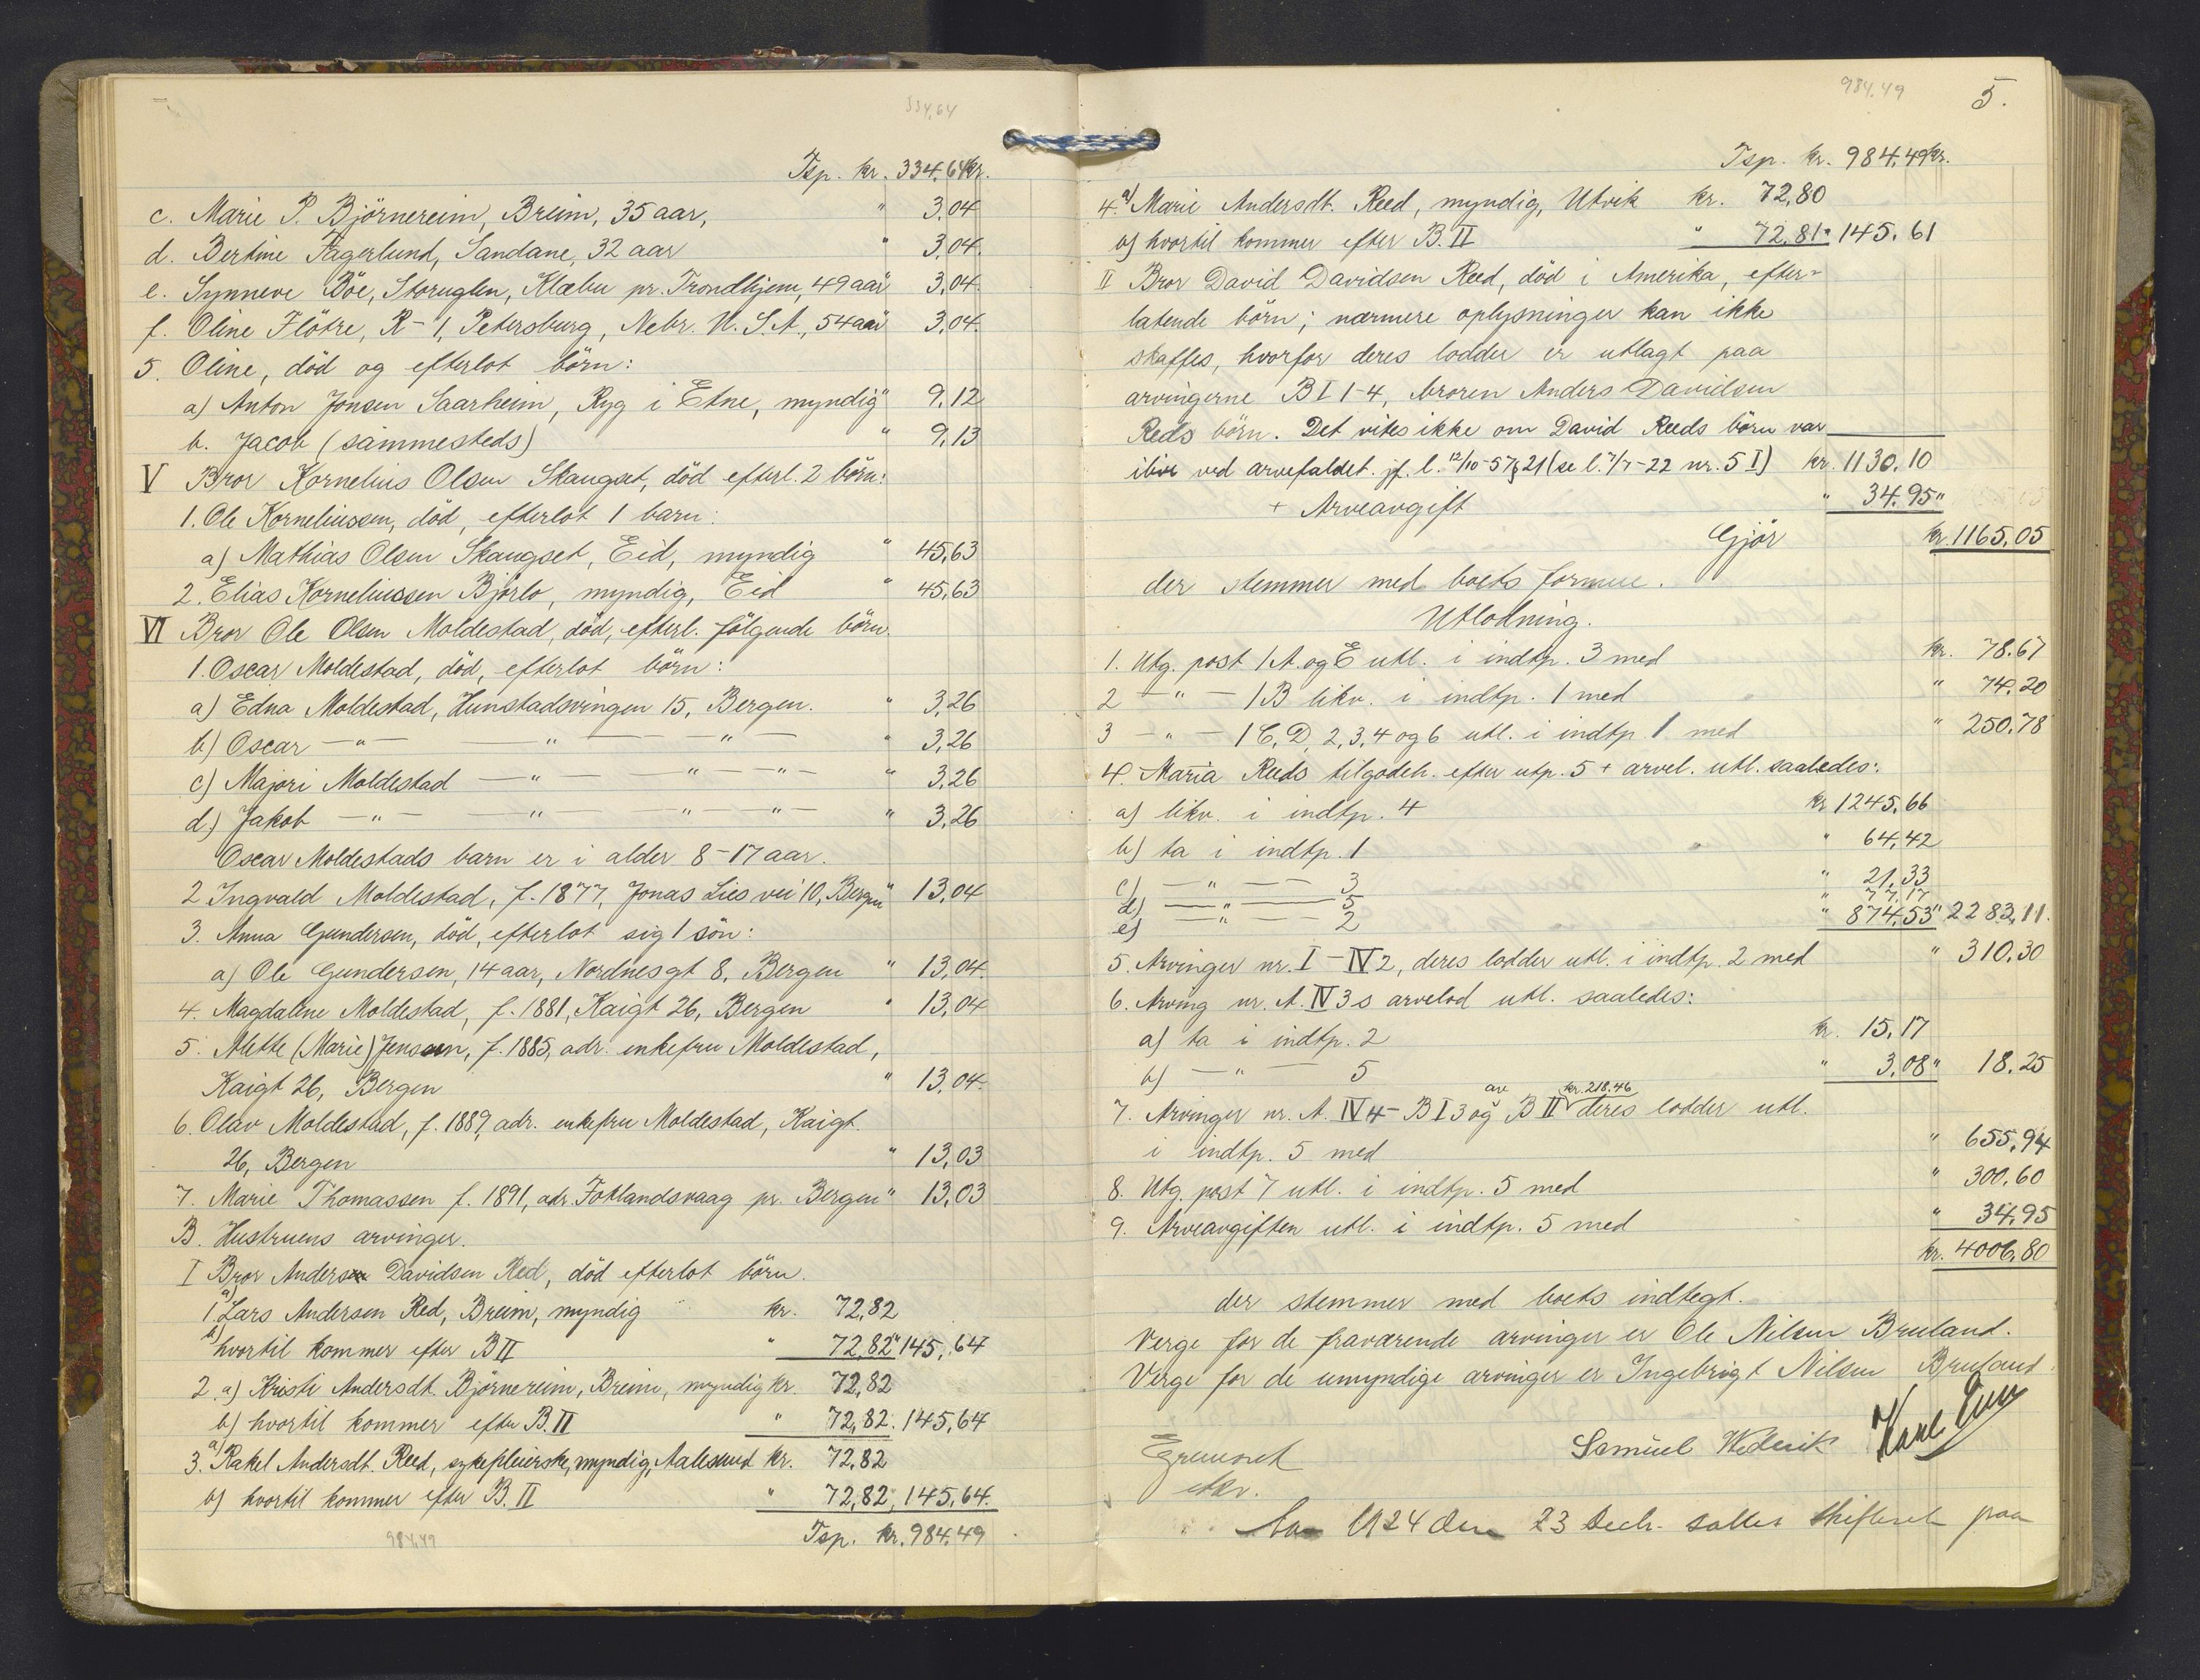 334,64
Tsp. kr. 334,64 kr.
c. Marie P. Björnereim, Breim, 35 aar, " 3,04
d. Bertine Fagerlund, Sandane, 32 aar " 3,04.
e. Synneve Böe, Storuglen, Klæbu pr. Trondhjem, 49 aar 3,04.
f. Oline Flötre, R-1, Petersburg, Nebr. U.S.A., 54 aar 3,04.
5. Oline, död og efterlot börn:
a) Anton Jonsen Saarheim, Ryg i Etne, myndig " 9,12
b. Jacob (sammesteds) " 9,13
V Bror Kornelius Olsen Skaugset, död efterl. 2 börn:
1. Ole Korneliussen, död, efterlot 1 barn:
a) Mathias Olsen Skaugset, Eid, myndig " 45,63
2. Elias Korneliussen Bjørlo, myndig, Eid " 45,63
VI Bror Ole Olsen Moldestad, död, efterl. fölgende börn.
1. Oscar Moldestad, död, efterlot börn:
a) Edna Moldestad, Hunstadsvingen 15, Bergen. " 3,26
b) Oscar — " — — " — — " — " 3,26
c) Majori Moldestad — " — " — " — " 3,26
d) Jakob — " — — " — " — " — " 3,26
Oscar Moldestads barn er i alder 8-17 aar.
2 Ingvald Moldestad, f. 1877, Jonas Lies vei 10, Bergen " 13,04
3. Anna Gundersen, död, efterlot sig 1 sön:
a) Ole Gundersen, 14 aar, Nordnesgt 8, Bergen " 13,04.
4. Magdalene Moldestad, f. 1881, Kaigt 26, Bergen " 13,04
5. Alette (Marie) Jenssen, f. 1885, adr. enkefru Moldestad,
Kaigt 26, Bergen " 13,04.
6. Olav Moldestad, f. 1889, adr. enkefru Moldestad, Kaigt.
26, Bergen " 13,03
7. Marie Thomassen f. 1891, adr. Fotlandsvaag pr. Bergen " 13,03
B. Hustruens arvinger.
I Bror Anders Davidsen Red, död efterlot börn.
1. a) Lars Andersen Red, Breim, myndig kr. 72,82
b) hvortil kommer efter B II " 72,82 " 145,64
2. a) Kristi Andersdt. Björnereim, Breim, myndig kr. 72,82
b) hvortil kommer efter B. II " 72,82. 145,64
3. a) Rakel Andersdt. Reed, sykepleierske, myndig, Aalesund kr. 72,82
b) hvortil kommer efter B. II " 72,82, 145,64.
Tsp. kr. 984,49
984,49
984,49
5.
Tsp. kr. 984,49 kr.
4. a) Marie Andersdt. Reed, myndig, Utvik kr. 72,80
b) hvortil kommer efter B. II " 72,81 " 145,61
II Bror David Davidsen Reed, död i Amerika, efter-
latende börn; nærmere oplysninger kan ikke
skaffes, hvorfor deres lodder er utlagt paa
arvingerne B I 1-4, broren Anders Davidsen
Reds börn. Det vites ikke om David Reeds börn var
ilive ved arvefaldet. jf. l. 12/10-57 § 21 (se l. 7/7-22 nr. 5 I) kr. 1130,10
+ Arveavgift " 34,95 "
Gjör kr. 1165,05
der stemmer med boets formue.
Utlodning.
1. Utg. post 1 A. og E utl. i indtp. 3 med kr. 78.67
2 — " — 1 B likv. i indtp. 1 med " 74,20
3 — " — 1 C, D, 2, 3, 4 og 6 utl. i indtp. 1 med " 250,78
4. Maria Reeds tilgodeh. efter utp. 5 + arvel. utl. saaledes:
a) likv. i indtp. 4 kr 1245,66
b) ta i indtp. 1 " 64,42
c) — " — 3 " 21,33
d) — " — 5 " 77,17
e) — " — 2 " 874,53 " 2283,11.
5. Arvinger nr. I-IV 2, deres lodder utl. i indtp. 2 med " 310,30
6. Arving nr. A. IV 3s arvelod utl. saaledes:
a) ta i indtp. 2 kr. 15,17
b) — " — 5 " 3,08 " 18.25
7. Arvinger nr. A. IV 4 - B I 3 og B II kr. 218.46 deres lodder utl.
i indtp. 5 med " 655,94
8. Utg. post 7 utl. i indtp. 5 med " 300,60
9. Arveavgiften utl. i indtp. 5 med " 34,95
kr. 4006,80
der stemmer med boets indtegt.
Verge for de fraværende arvinger er Ole Nilsen Bruland.
Verge for de umyndige arvinger er Ingebrigt Nilsen Bruland.
Samuel
1924 den 23 Decb. sattes skifteret paa